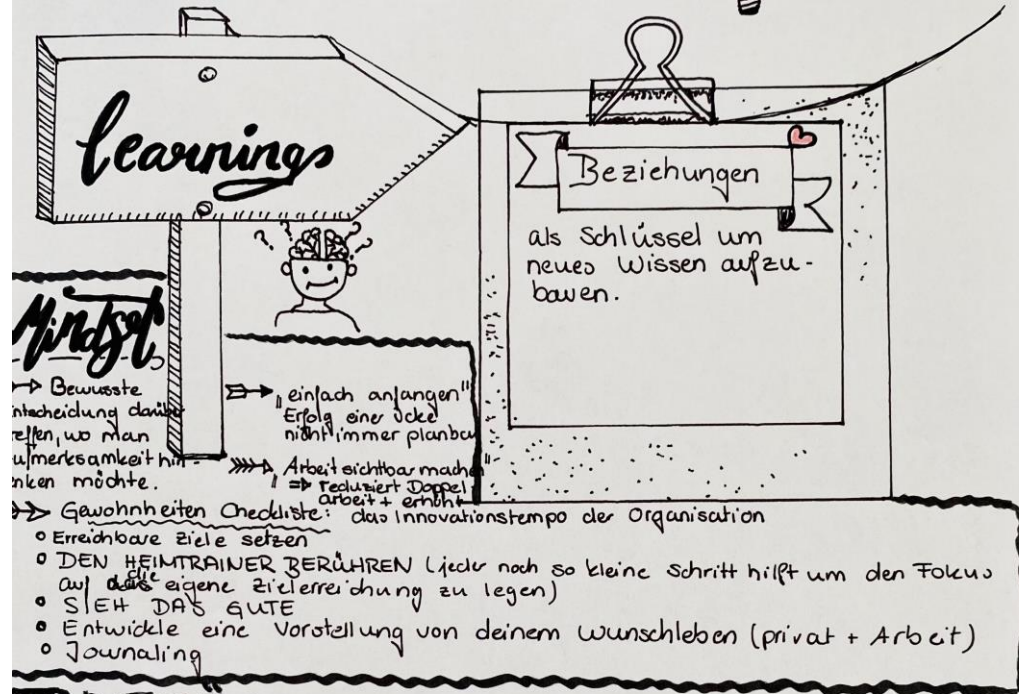 learnings
Beziehungen
als Schlüssel um
neues Wissen aufzu-
bauen.
Mindset
Bewusste
ntscheidung darübe
effen, wo man
ufmerksamkeit hin-
nken möchte.
„einfach anfangen"
Erfolg einer Idee
nicht immer planbar
„Arbeit sichtbar mache"
⇒ reduziert Doppel-
arbeit + erhöht
das Innovationstempo der Organisation
Gewohnheiten Checkliste:
o Erreichbare Ziele setzen
o DEN HEIMTRAINER BERÜHREN (jeder noch so kleine Schritt hilft um den Fokus
auf die eigene Zielerreichung zu legen)
o SIEH DAS GUTE
o Entwickle eine Vorstellung von deinem Wunschleben (privat + Arbeit)
o Journaling